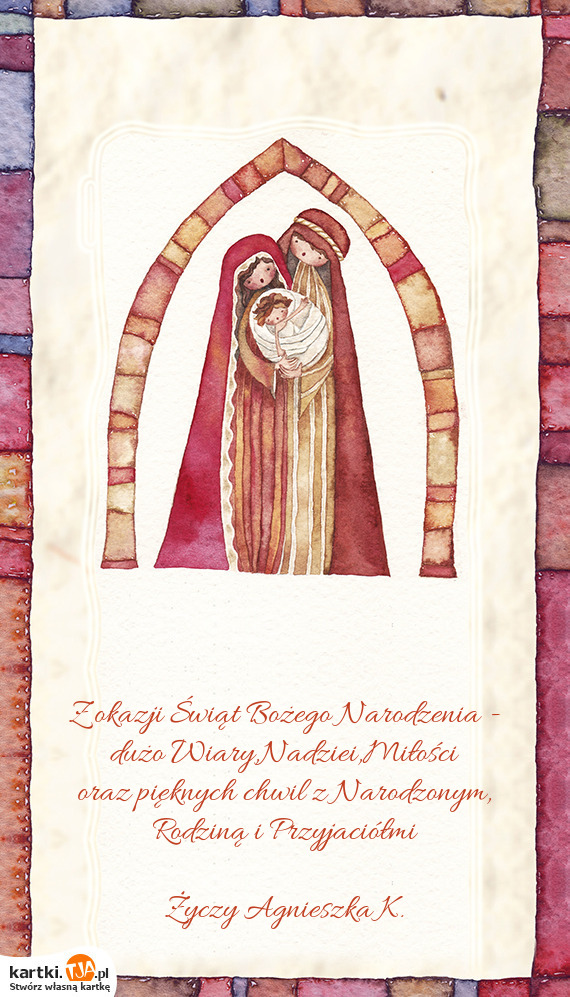 Z okazji Świąt Bożego Narodzenia -
dużo Wiary,Nadziei,Miłości
oraz pięknych chwil z Narodzonym,
Rodziną i Przyjaciółmi
Życzy Agnieszka K.
kartki.TJA.pl
Stwórz własną kartkę